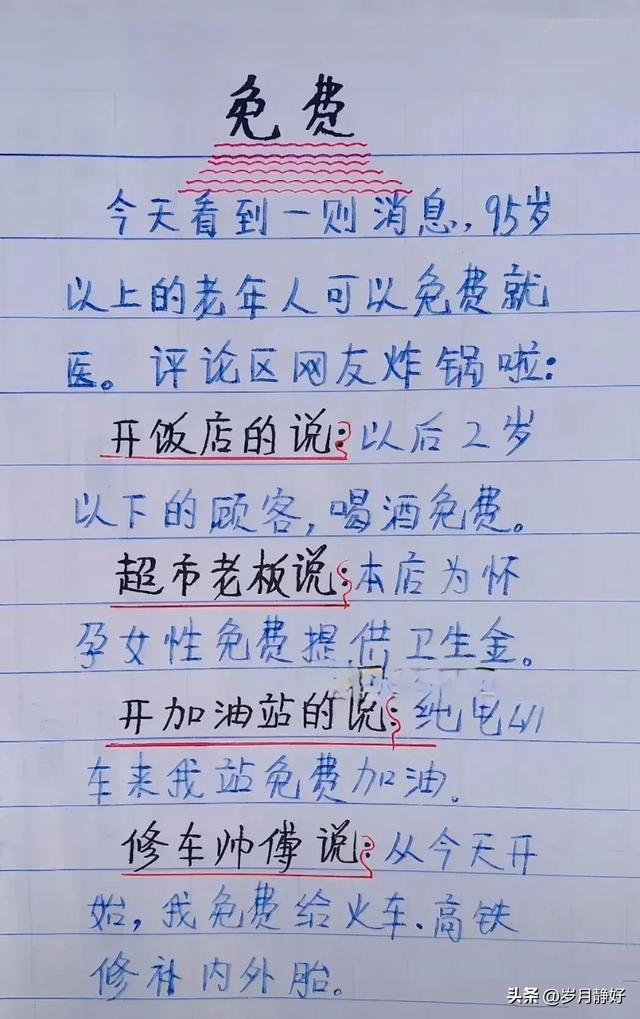 免费
今天看到一则消息,95岁
以上的老年人可以免费就
医。评论区网友炸锅啦:
开饭店的说:以后2岁
以下的顾客,喝酒免费。
超市老板说:本店为怀
孕女性免费提供卫生金。
开加油站的说:纯电
车来我站免费加油。
修车帅傅说:从今天开
始,我免费给火车、高铁
修补内外胎。
头条 @岁月静好